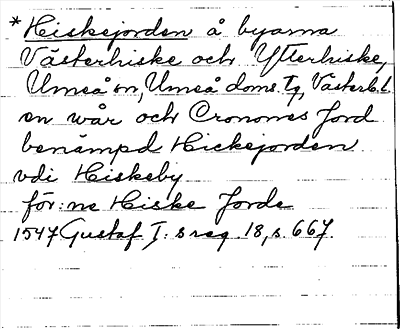 *Hiskejorden å byarna
Västerhiske och Ytterhiske,
Umeå sn, Umeå doms. Tg, Västerb. l.
en wår och Cronones Jord
benämpd Hickejorden
vdi Hiskeby
för:ne Hiske Jorde
1547 Gustaf I:s reg. 18, s. 667.